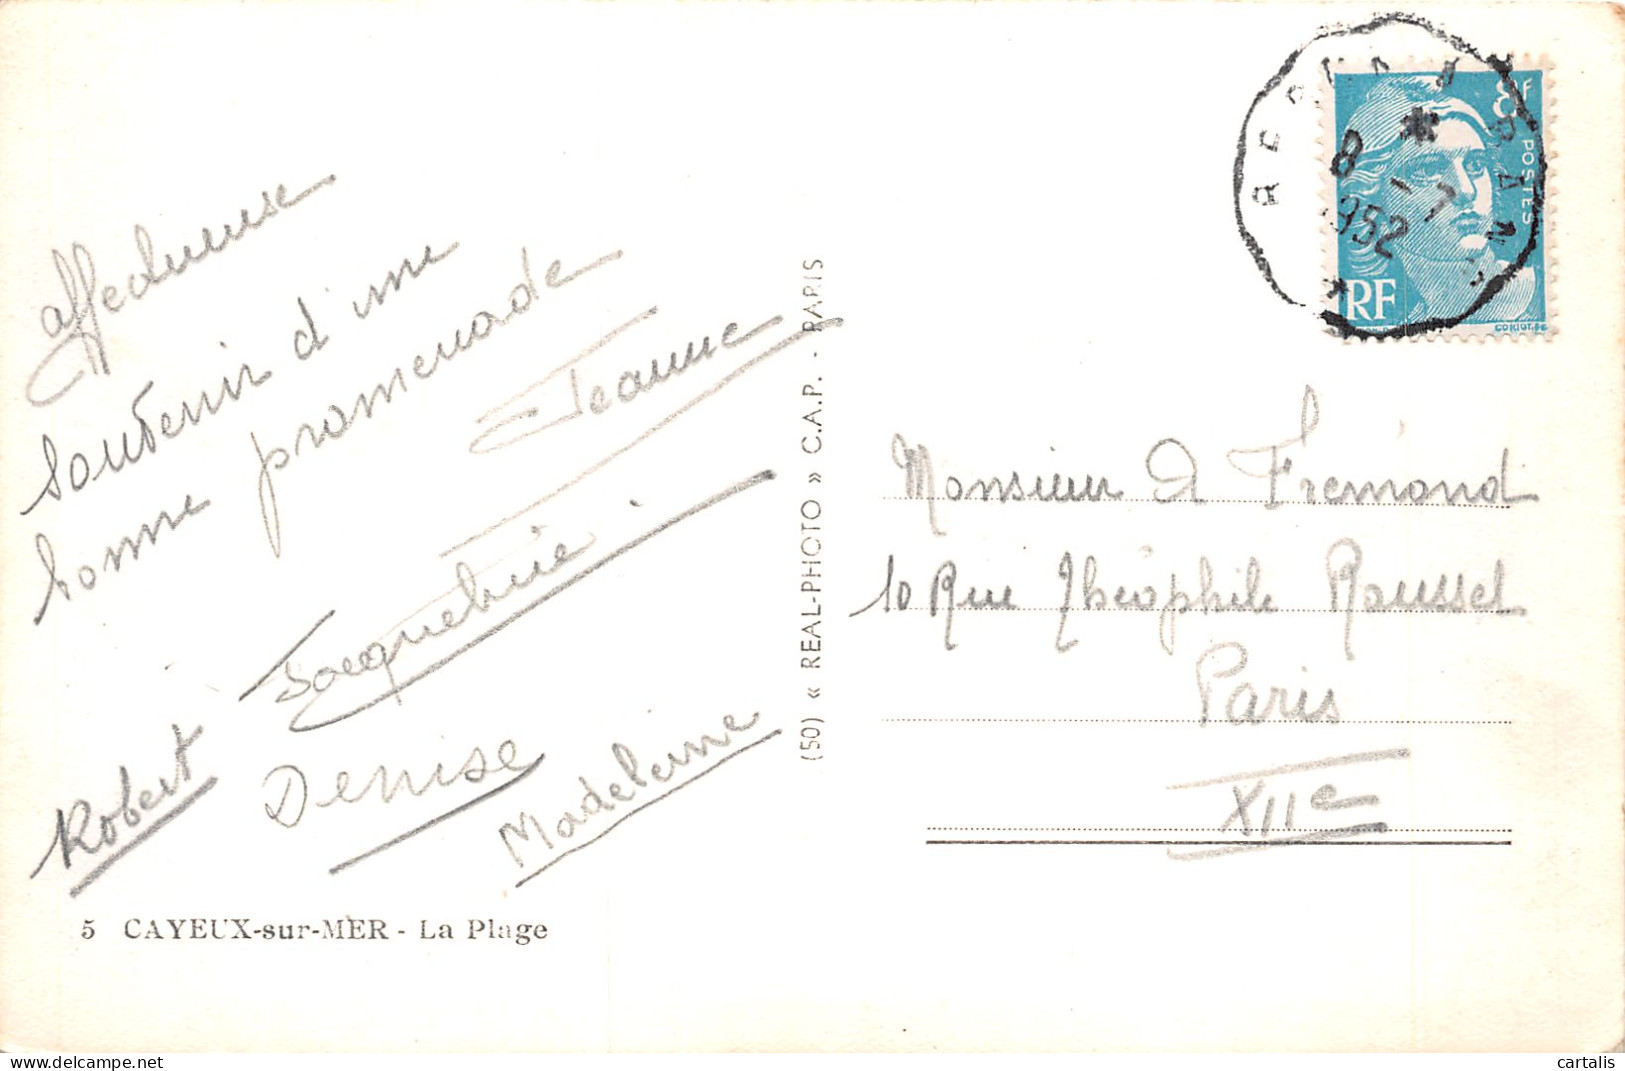 affectueuse
souvenir d'une
bonne promenade
Jeanne
Jacqueline
Robert
Denise
Madeleine
5 CAYEUX-sur-MER - La Plage
(50) « REAL-PHOTO » C.A.P. - PARIS
8 -7
1952
8F
POSTES
RF
Monsieur A Fremond
10 Rue Théophile Roussel
Paris
XIIe
cartalis